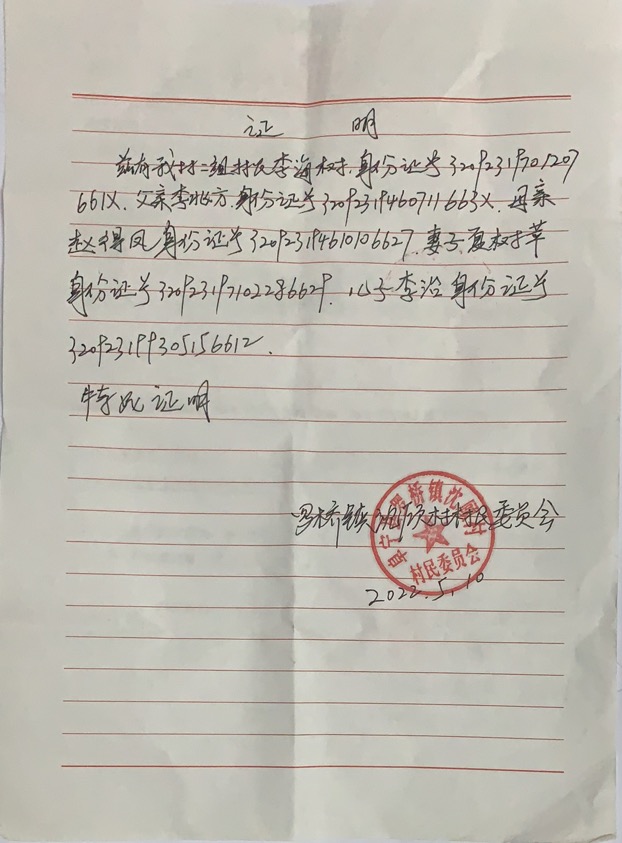 证 明
兹有我村二组村民李海权,身份证号32092319701207
661X.父亲李兆方,身份证号32092319460711663X.母亲
赵得凤身份证号320923194610106627.妻子夏权萃
身份证号320923197102286629.儿子李治身份证号
320923199305156612.
特此证明
罗桥镇 村村民委员会
阜宁 罗桥镇沈 村
村民委员会
2022.5.10